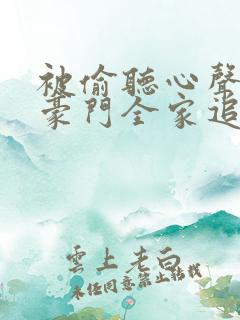 被偷聽心聲
豪門全家追
雲上老白
未經同意禁止轉載